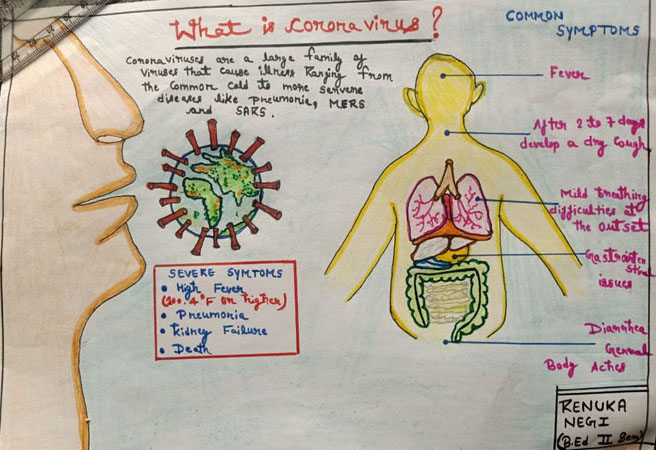 What is coronavirus?
Coronaviruses are a large family of
viruses that cause illness Ranging from
the Common Cold to more servere
diseases like pneumonia, MERS
and SARS.
SEVERE SYMTOMS
• High Fever
(100.4°F or higher)
• Pneumonia
• Kidney Failure
• Death
COMMON
SYMPTOMS
Fever
After 2 to 7 days
develop a dry Cough
Mild breathing
difficulties at
the outset
Gastrointen
stinal
issues
Diarrhea
Genral
Body Aches
RENUKA
NEGI
(B.Ed II Sem)